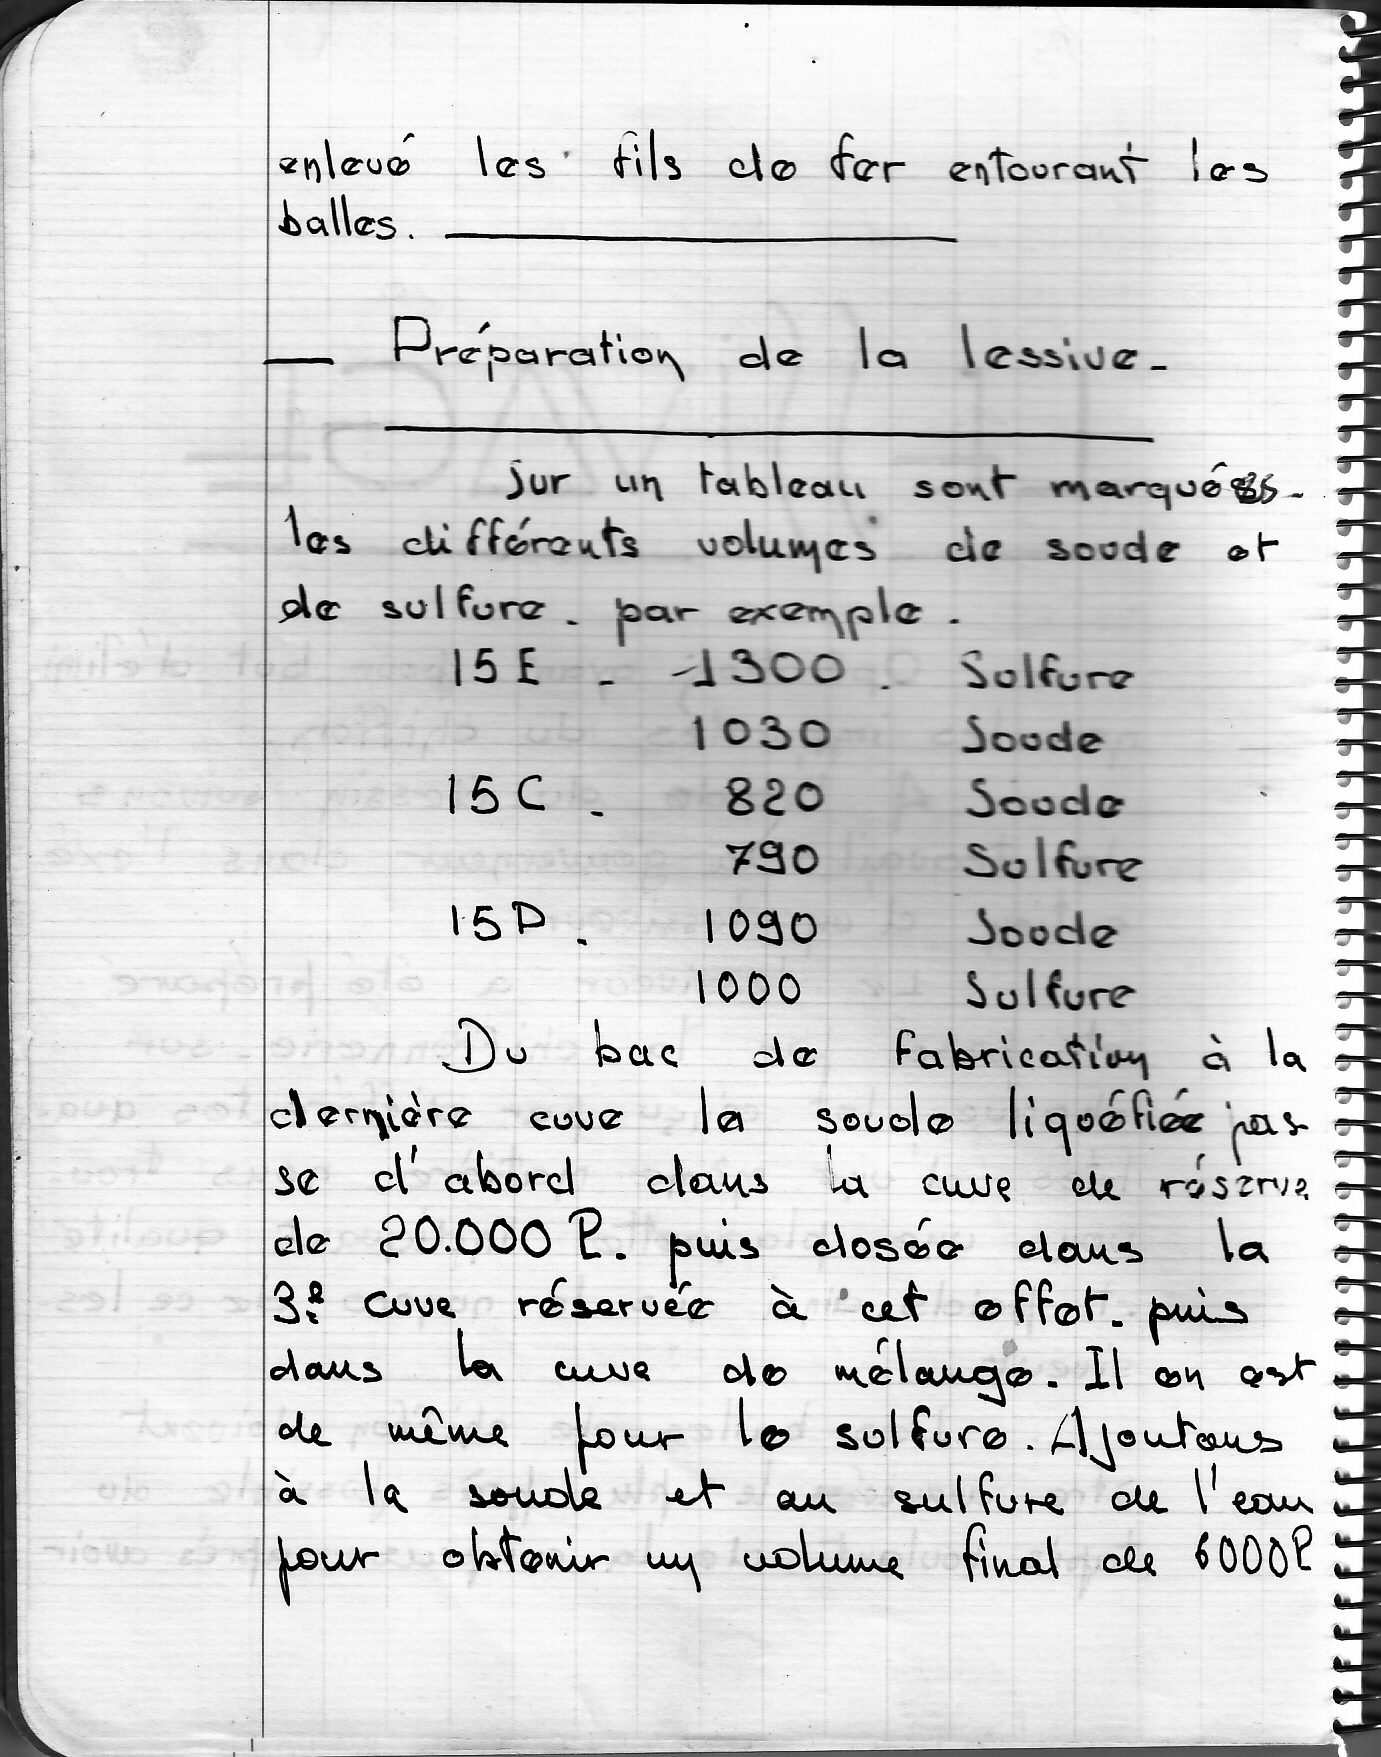 enlevé les fils de fer entourant les
balles.
— Préparation de la lessive.
Sur un tableau sont marqués
les différents volumes de soude et
de sulfure. par exemple.
15 E - 1300. Sulfure
1030 Soude
15 C. 820 Soude
790 Sulfure
15 D. 1090 Soude
1000 Sulfure
Du bac de fabrication à la
dernière cuve la soude liquéfiée pas
se d'abord dans la cuve de réserve
de 20.000 l. puis dosée dans la
3e cuve réservée à cet effet. puis
dans la cuve de mélange. Il en est
de même pour le sulfure. Ajoutons
à la soude et au sulfure de l'eau
pour obtenir un volume final de 6000 l